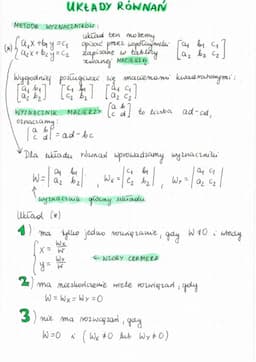 UKŁADY RÓWNAŃ
METODA WYZNACZNIKÓW:
(*) { a₁x + b₁y = c₁
a₂x + b₂y = c₂
układ ten możemy
opisać przez współczynniki
zapisane w tablicy
zwanej MACIERZĄ
[a₁ b₁ c₁]
[a₂ b₂ c₂]
Wygodniej posługiwać się macierzami kwadratowymi:
[a₁ b₁] [c₁ b₁] [a₁ c₁]
[a₂ b₂] [c₂ b₂] [a₂ c₂]
WYZNACZNIK MACIERZY [a b] to liczba ad-cb,
[c d]
oznaczamy:
|a b|
|c d| = ad-bc
Dla układu równań wprowadzamy wyznaczniki
W = |a₁ b₁| , Wx = |c₁ b₁| , Wy = |a₁ c₁|
|a₂ b₂| |c₂ b₂| |a₂ c₂|
wyznacznik główny układu
Układ (*)
1) ma tylko jedno rozwiązanie, gdy W≠0 i wtedy
{ x = Wx/W
y = Wy/W
← WZORY CRAMERA
2) ma nieskończenie wiele rozwiązań, gdy
W = Wx = Wy = 0
3) nie ma rozwiązań, gdy
W=0 i (Wx≠0 lub Wy≠0)